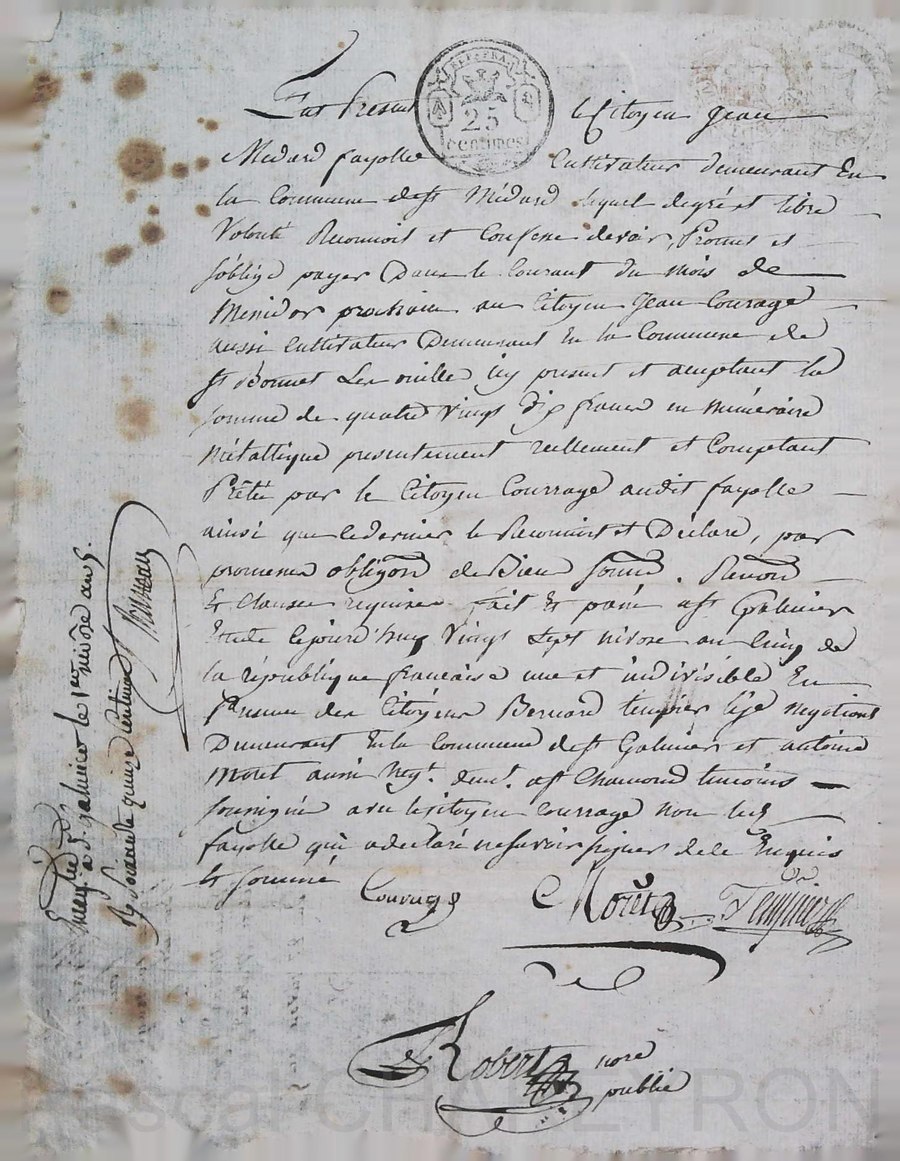 REP. FRA.
25
centimes
Fut Present le Citoyen Jean
Medard fayolle Cultivateur demeurant En
la Commune de st Médard lequel de gré et libre
Volonté Reconnoit et Confesse devoir, Promet et
s'oblige payer Dans le Courant du mois de
Mesidor prochain au Citoyen Jean Courage
aussi Cultivateur Demeurant En la Commune de
st Bonnet Les oulle icy present et acceptant la
somme de quatre Vingt dix francs en numéraire
métallique presentement reellement et Comptant
Prêtée par le Citoyen Courrage audit fayolle
ainsi que ce dernier le Reconnoit et Déclare, par
promesse obligon de Bien soumon. Renon
Et Clauses requises fait Et passé a st Galmier
Etude Cejourd'huy Vingt Sept nivose an Cinq de
la république francaise une et indivisible En
Presence des Citoyens Bernard tempier l'ainé negotiant
Demeurant En la Commune de st Galmier et antoine
Moret aussi Negt. demt. a st Chamond temoins
soussignés avec le citoyen Courrage non ledt
fayolle qui a déclaré ne savoir signer de ce Enquis
Et sommé
Courage Moret Tempier
Robert nore
public
Enregistré à St. galmier le 1er nivôse an 5.
Rç soixante quinze centimes